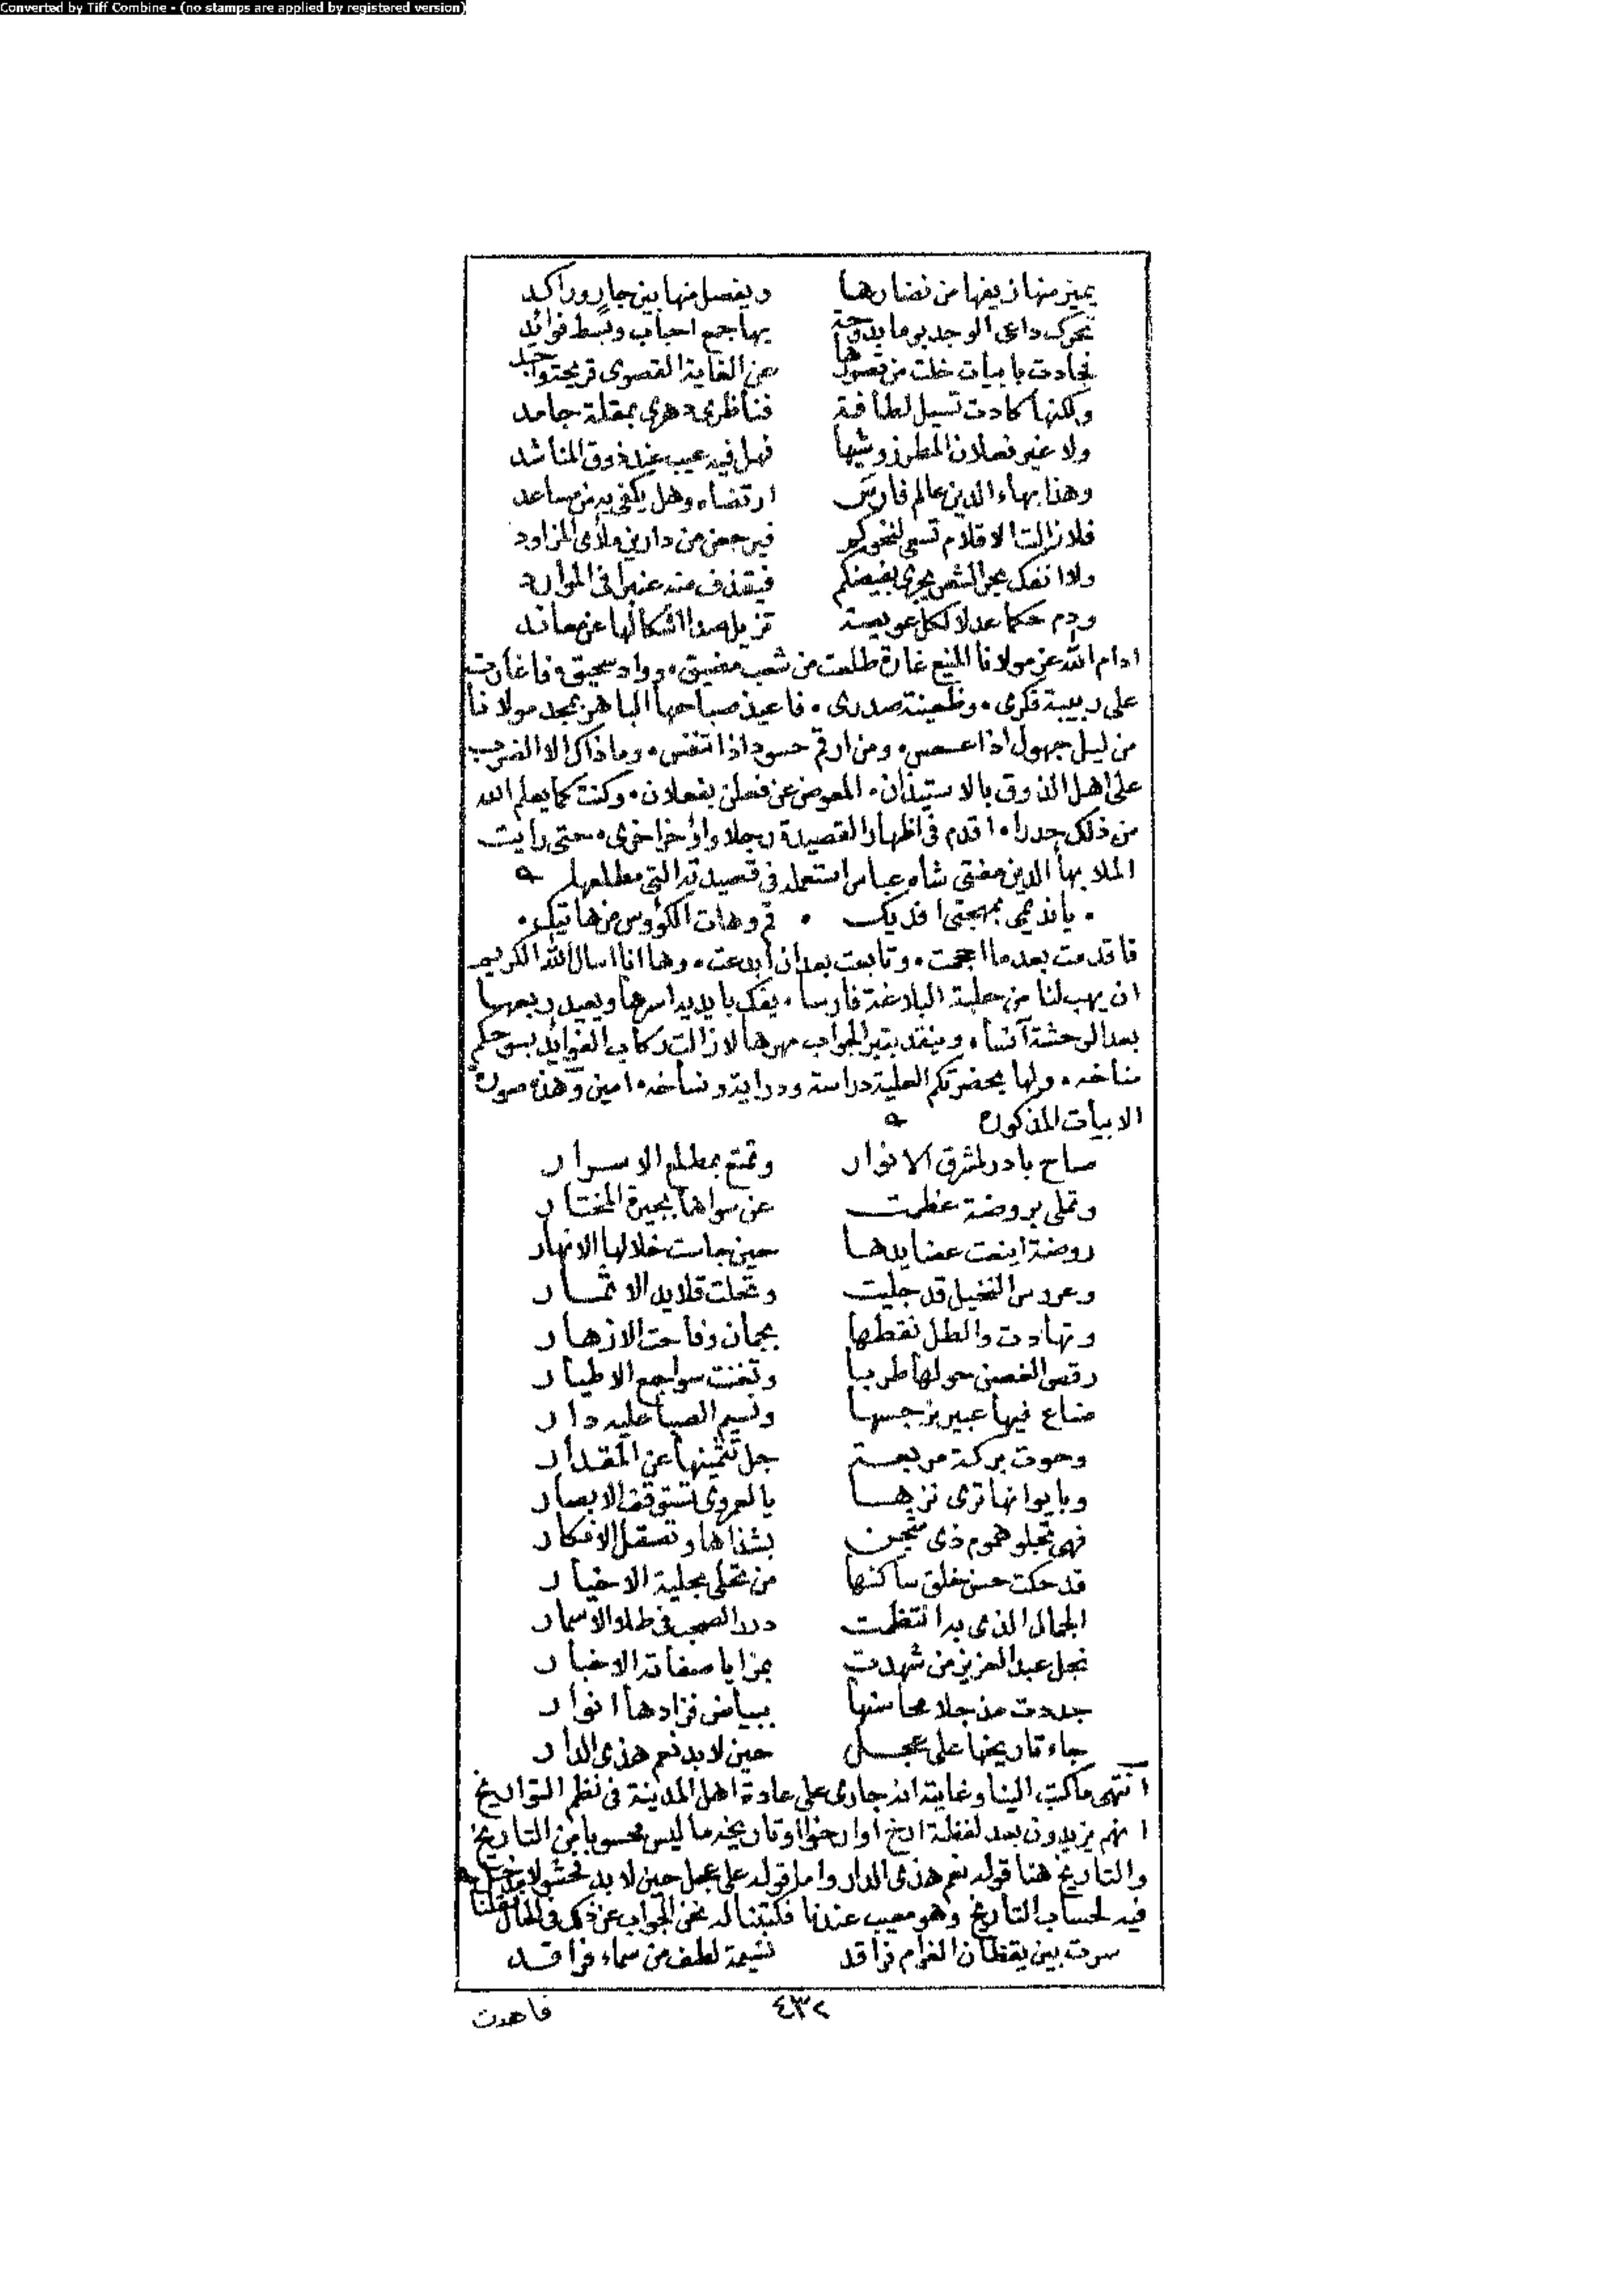 Converted by Tiff Combine - (no stamps are applied by registered version)
يميز منها زيفها من نضارها ويفصل منها بين جار وراكد
تحرك داعى الوجد يوما بدوحة بها جمع احباب وبسط فوائد
فجادت بابيات خلت من قصورها عن الغاية القصوى قريحة واجد
ولكنها كادت تسيل لطافة فناظرى دهرى بمقلة جامد
ولا غير فعلان المطرز وشيها فهل فيه عيب عند ذوق المناشد
وهذا بهاء الدين عالم فارس ارتضاه وهل يكفى به من مساعد
فلا زالت الاقلام تسعى لنحوكم فيرجعن من دارين ملأى المزاود
ولا انفك بحر الشعر يجرى بفيضكم فيقذف منه عنبرا فى الموارد
ودم حكما عدلا لكل عويصة تزيل صدا اشكالها عن معاند
ادام الله عز مولانا المنيع غارة طلعت من شعب مضيق، وواد سحيق، فاغارت
على ربيبة فكرى، وظعينة صدرى، فاعيذ صباحها الباهر بمجد مولانا
من ليل جهول اذا عسعس، ومن ارقم حسود اذا تنفس، وما ذاك الا الضرب
على اهل الذوق بالاستيذان، المعوض عن فعلن بفعلان، وكنت كما يعلم الله
من ذلك حذرا، اقدم فى اظهار القصيدة رجلا واؤخر اخرى، حتى رايت
الملا بهأ الدين مفتى شاه عباس استعمله فى قصيدته التى مطلعها
يا نديمى بمهجتى افديك قم وهات الكؤوس من هاتيك
فاقدمت بعد ما احجمت، وتابعت بعد ان ابدعت، وها انا اسال الله الكريم
ان يهب لنا من حلبة البلاغة فارسا، يفك بايديه اسرها ويعيد ربعها
بعد الوحشة آنسا، وينقد بتبر الجواب مهرها لا زالت ركاب الفوائد بسوحكم
مناخه، ولها بحضرتكم العلية دراسة ودراية ونساخه، امين وهذه صورة
الابيات المذكورة
صاح بادر لمشرق الانوار وتمتع بمطلع الاسرار
وتملى بروضة عظمت عن سواها بجيرة المختار
روضة اينعت عضايدها حين جاست خلالها الانهار
وعروس النخيل قد جليت وتحلت قلايد الاثمار
وتهادت والطل نقطها بجمان وفاحت الازهار
رقص الغصن حولها طربا وتغنت سواجع الاطيار
ضاع فيها عبير نرجسها ونسيم الصبا عليه دار
وحوت بركة مربعة جل تثمينها عن المقدار
وبايوانها ترى نزها يا لعمرى تستوقف الابصار
فهى تجلو هموم ذى شجن بشذاها وتصقل الافكار
قد حكت حسن خلق ساكنها من تحلى بحلية الاخيار
الجمال الذى به انتظمت درر الصحب فى طلو الاسمار
نجل عبد العزيز من شهدت بمزايا صفاته الاخبار
جددت مذ جلا محاسنها ببياض فزادها انوار
جاء تاريخها على عجل حين لا بد نعم هذى الدار
انتهى ما كتب الينا وغايته انه جارى على عادة اهل المدينة فى نظم التواريخ
انهم يزيدون بعد لفظة ارخ او ارخوا او تاريخه ما ليس محسوبا من التاريخ
والتاريخ هنا قوله نعم هذى الدار واما قوله على عجل حين لا بد فحشو لا مدخل
فيه لحساب التاريخ وهو معيب عندنا فكتبنا له نحن الجواب عن ذلك فى الحال فقلنا
سرت بين يقظان الغرام وراقد نسيمة لطف من سماء فراقد
٤٣٢
فاهدت